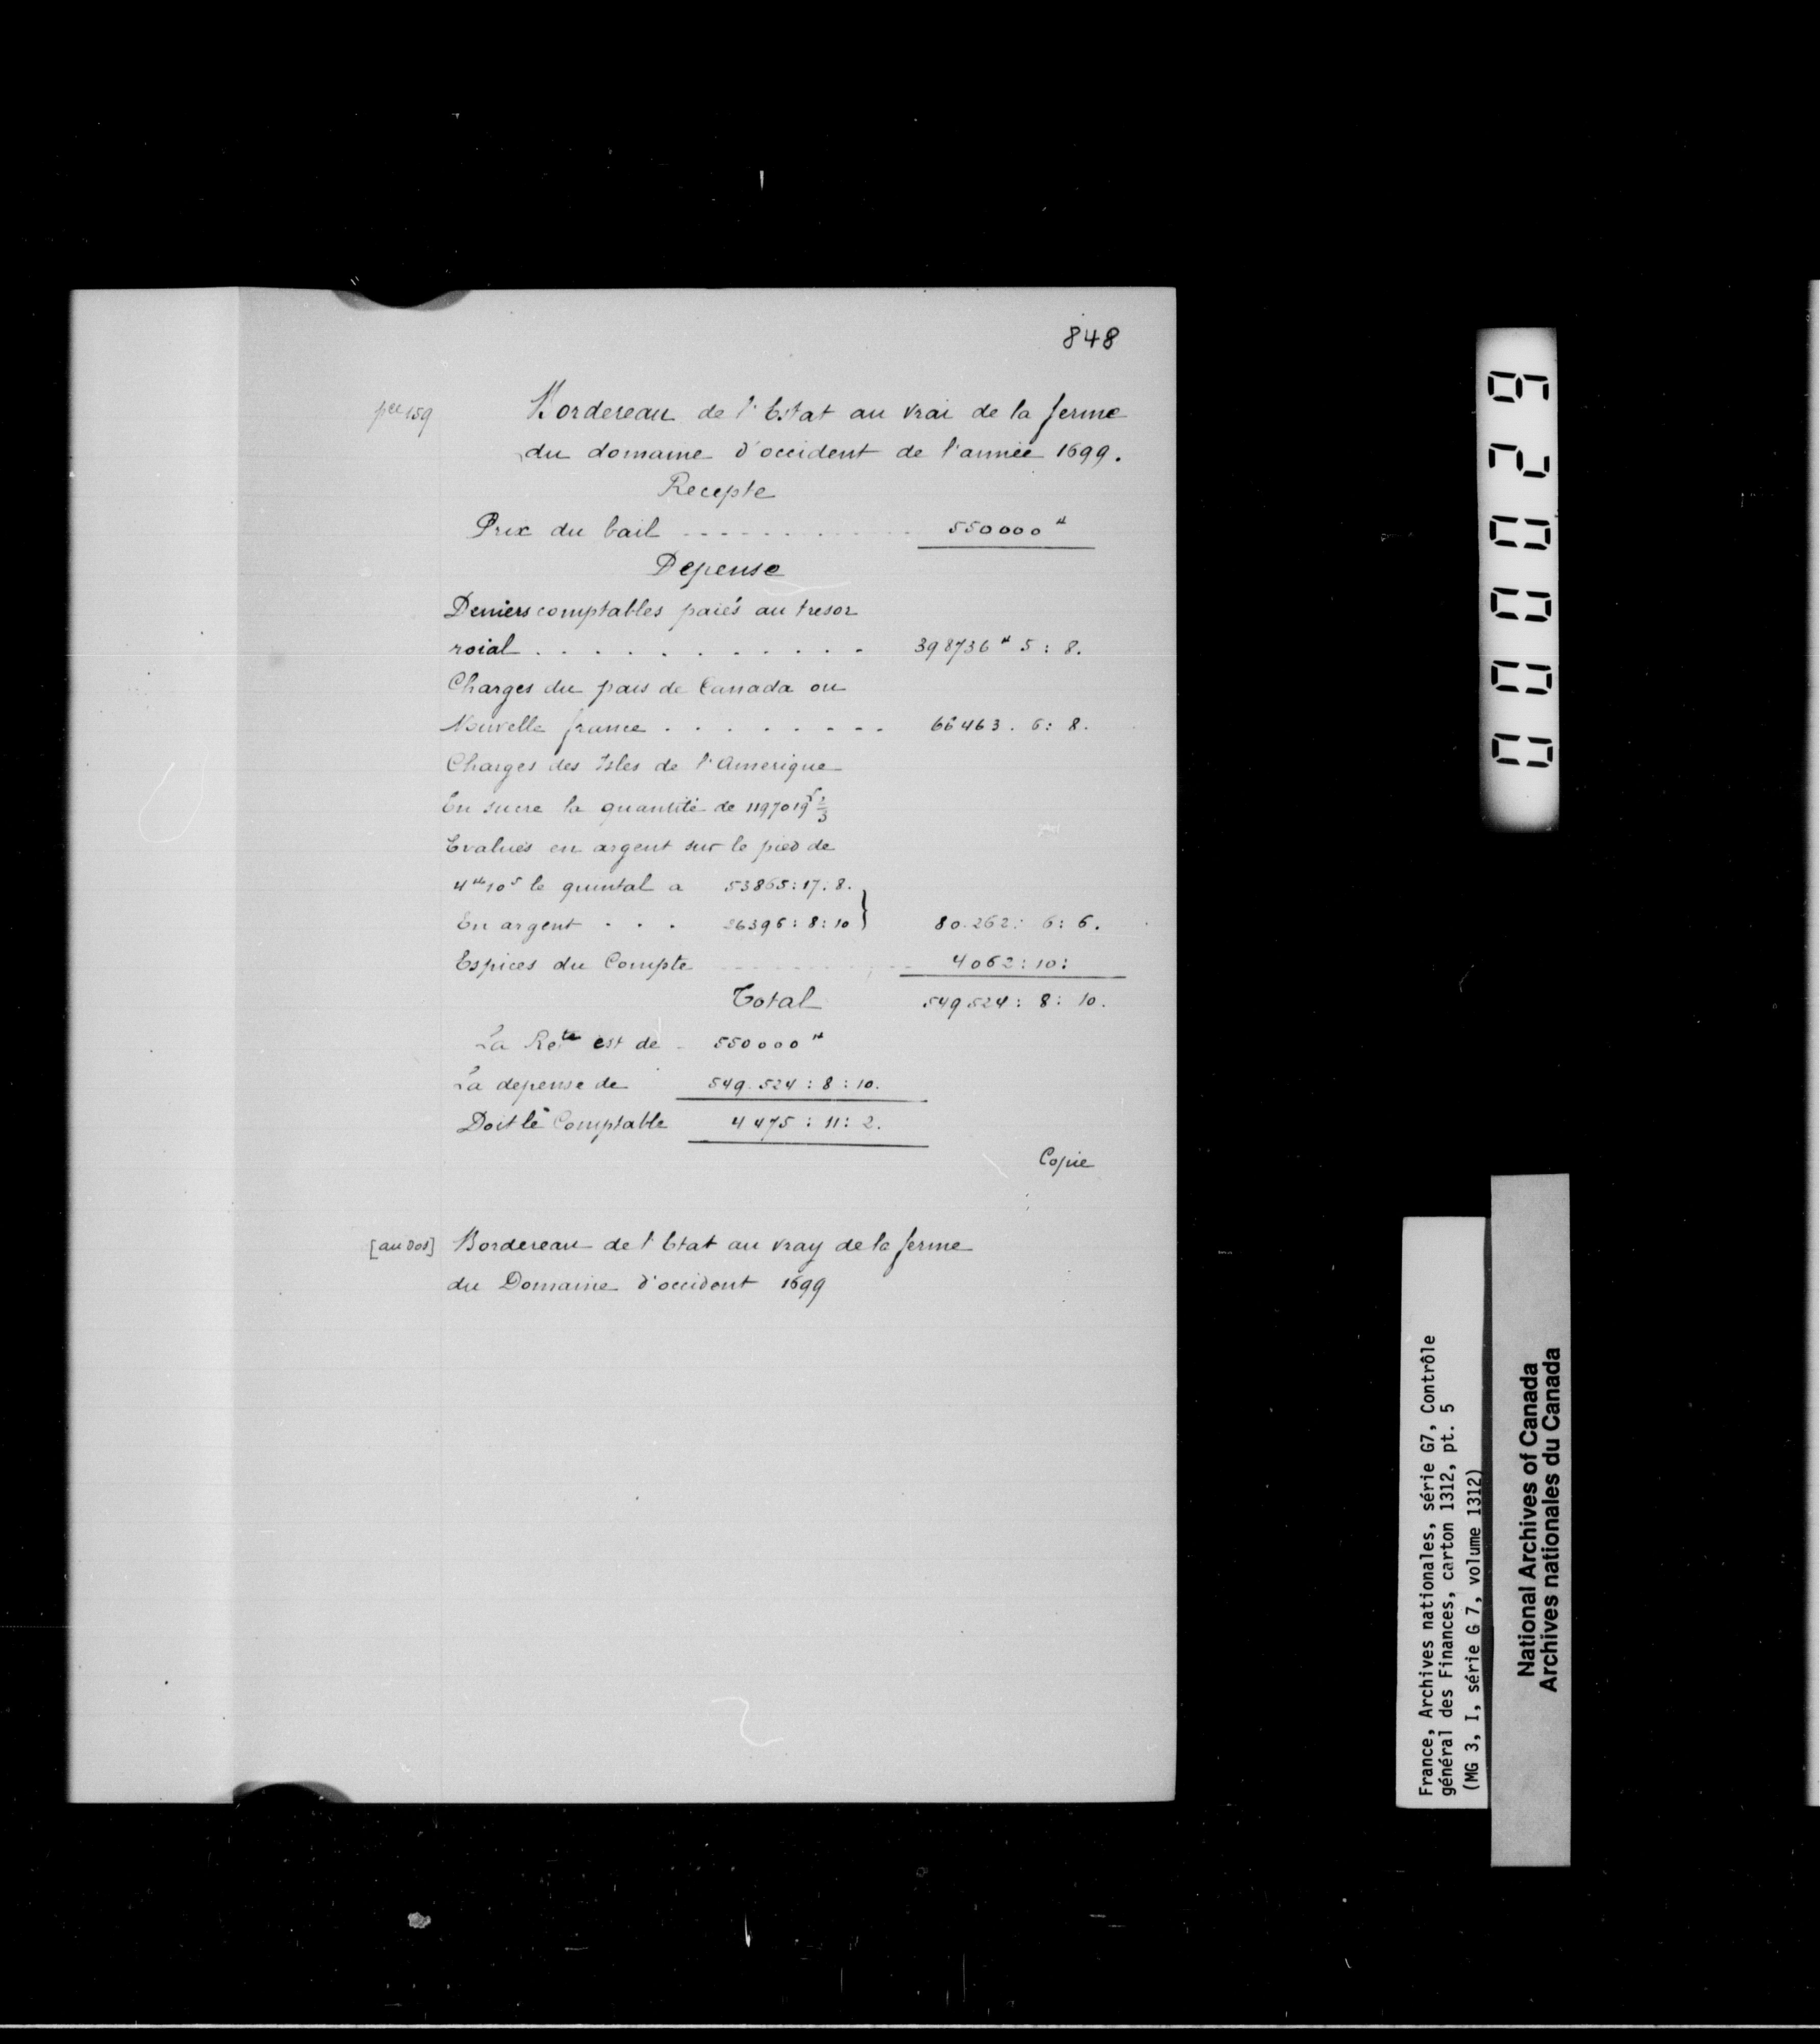 848
pce 159
Bordereau de l'Estat au vrai de la ferme
du domaine d'occident de l'année 1699.
Recepte
Prix du bail ............ 550000 ₶
Depense
Deniers comptables paiés au tresor
roial ............ 398736 ₶ 5 : 8.
Charges du pais de Canada ou
Nouvelle france ......... 66463 . 6 : 8.
Charges des Isles de l'Amerique
En sucre la quantité de 1197019 2/3
Evalués en argent sur le pied de
4 ₶ 10 s le quintal a 53865 : 17 : 8.
En argent . . . 26396 : 8 : 10 } 80.262 : 6 : 6.
Espices du Compte ......... 4062 : 10 :
Total 549.524 : 8 : 10.
La Rete est de - 550000 ₶
La depense de 549.524 : 8 : 10.
Doit le Comptable 4475 : 11 : 2.
Copie
[au dos] Bordereau de l'Etat au vray de la ferme
du Domaine d'occident 1699
000029
France, Archives nationales, série G7, Contrôle
général des Finances, carton 1312, pt. 5
(MG 3, I, série G 7, volume 1312)
National Archives of Canada
Archives nationales du Canada